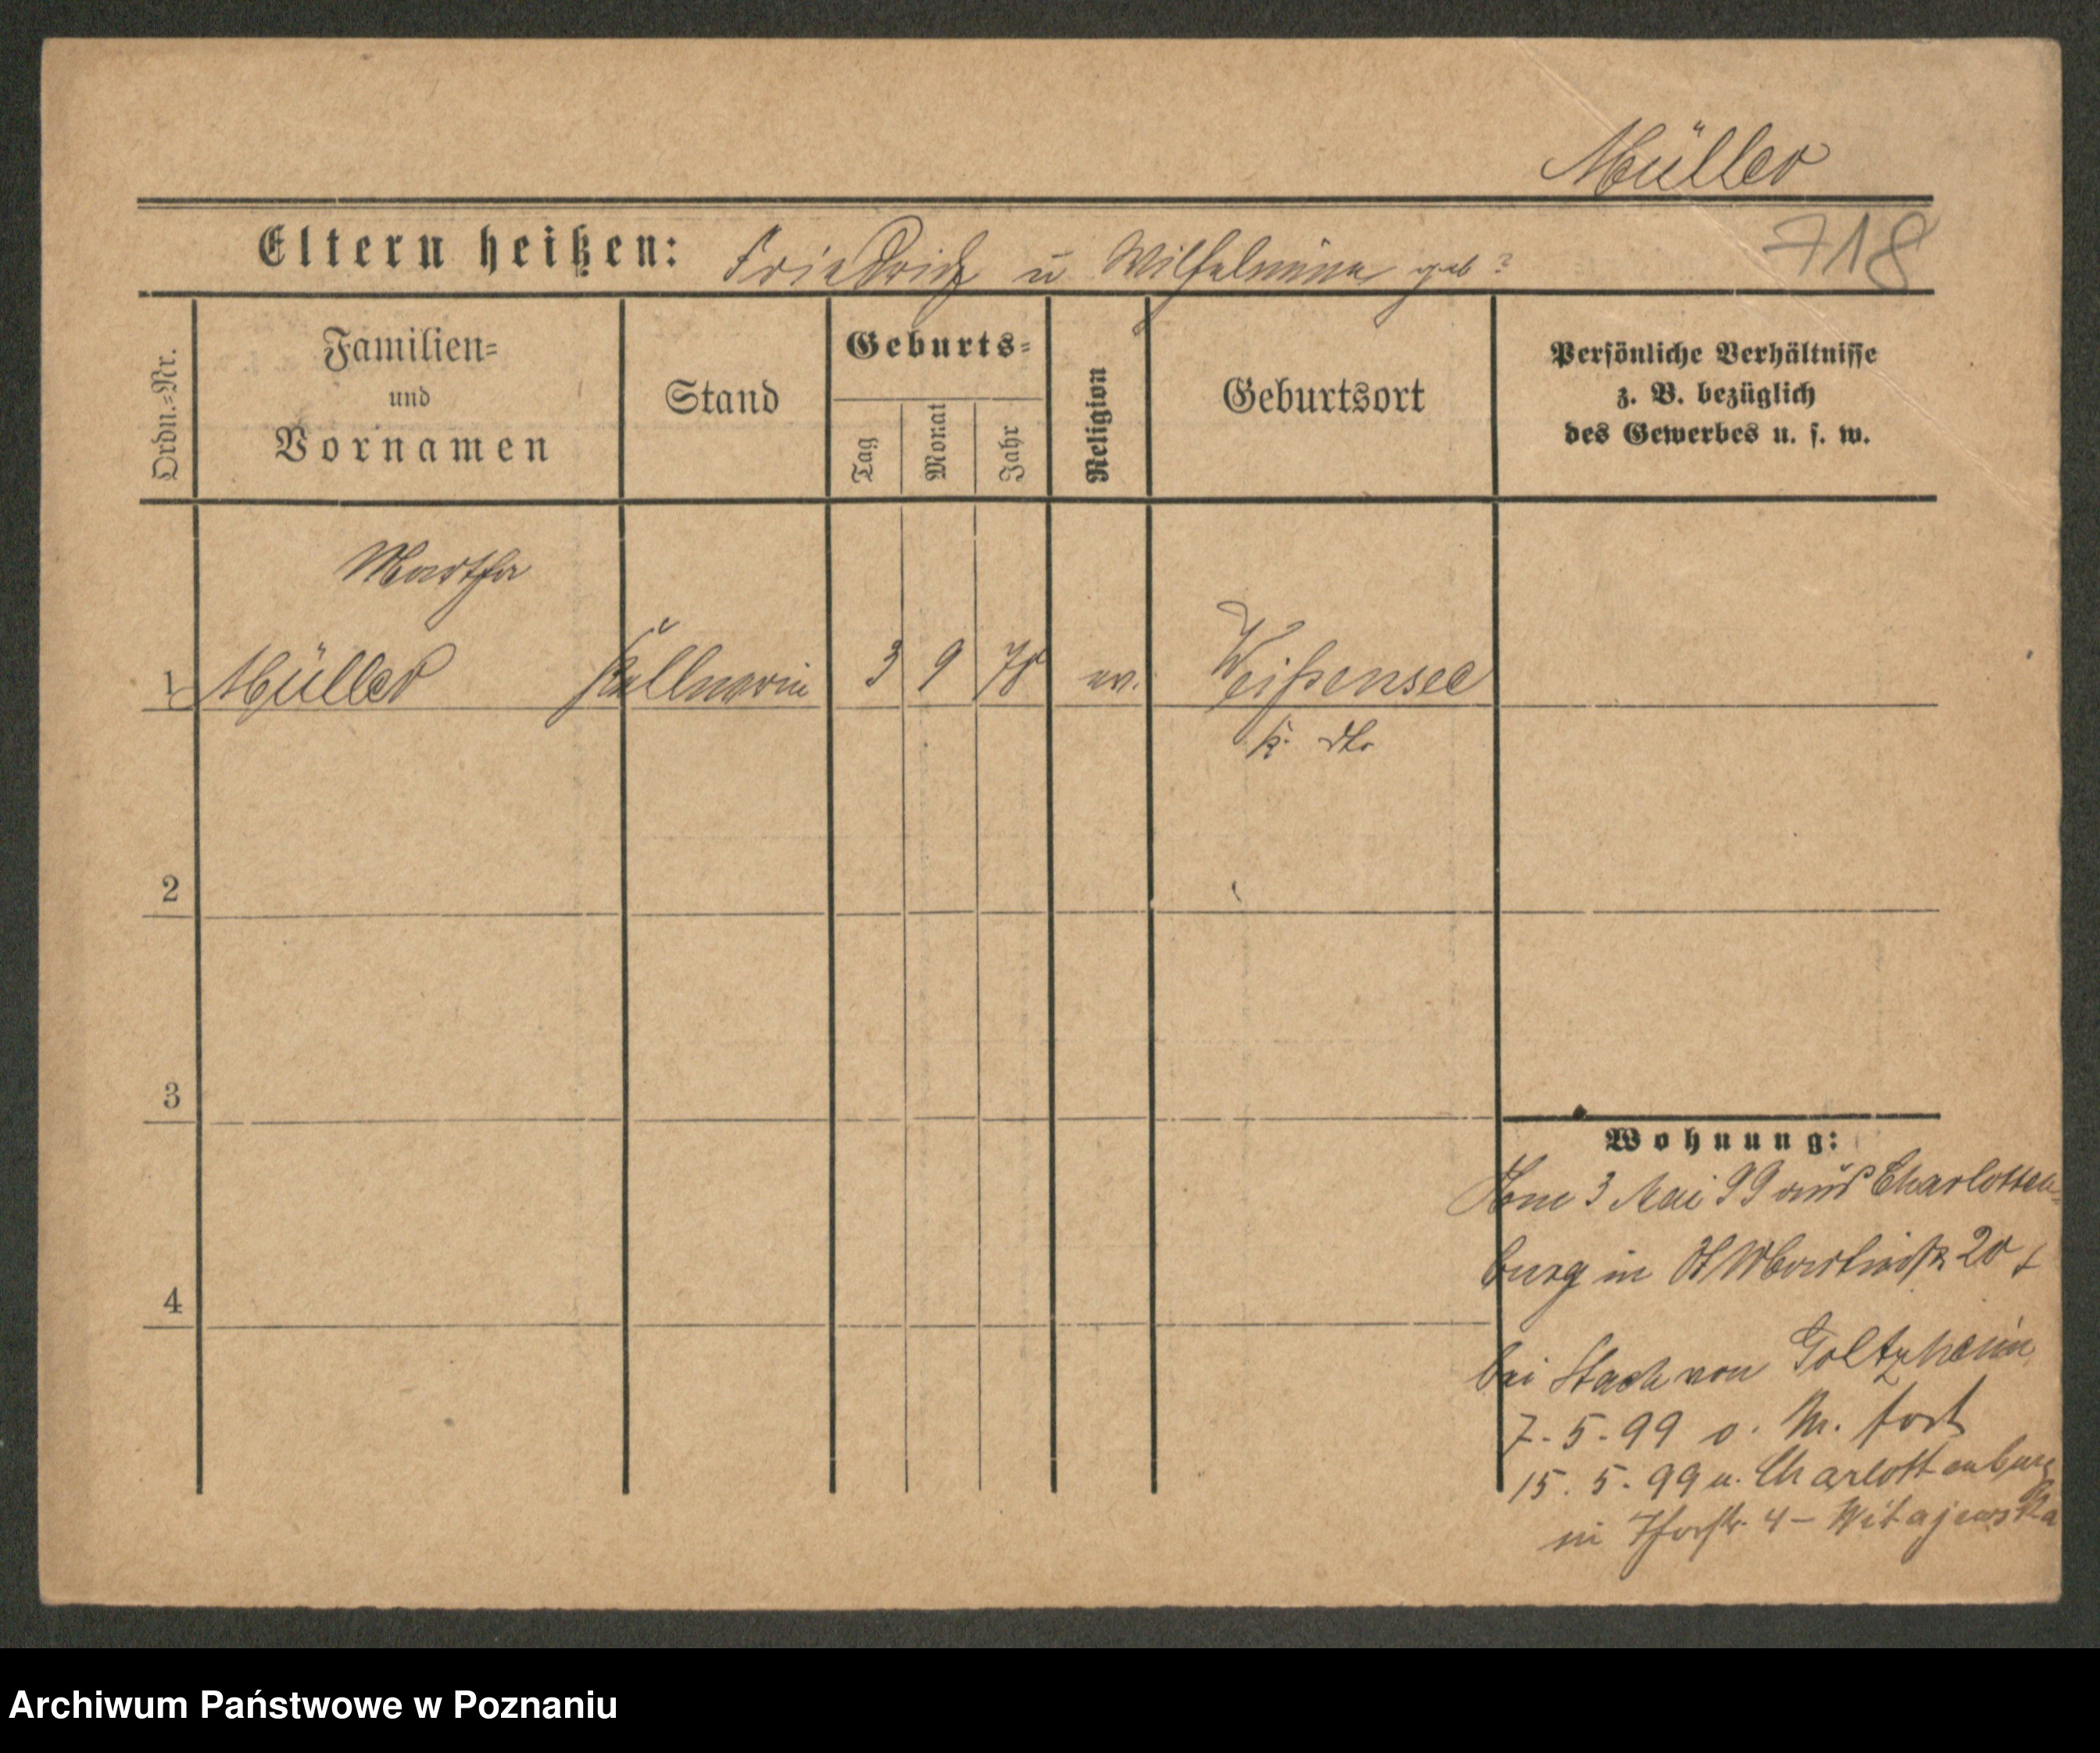 Müller
Eltern heißen: Friedrich u Wilhelmine geb ?
718
Ordn.=Nr.
Familien=
und
Vornamen
Stand
Geburts=
Tag
Monat
Jahr
Religion
Geburtsort
Persönliche Verhältnisse
z. B. bezüglich
des Gewerbes u. s. w.
Martha
1 Müller Kellnerin 3 9 78 ev. Weißensee
K. dto
2
3
4
Wohnung:
3 Mai 99 aus Charlotten=
burg in 20
bei Stach von Goltzheim
7. 5. 99 o. M. fort
15. 5. 99 a. Charlottenburg
in 4 – Witajewska
Archiwum Państwowe w Poznaniu